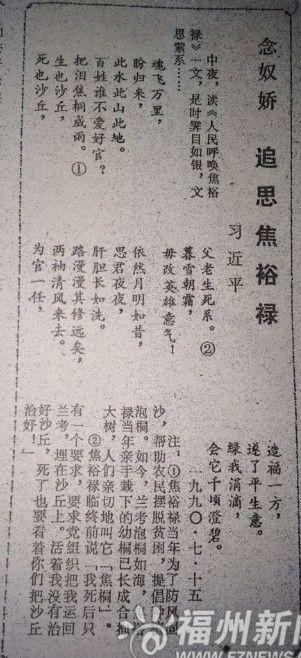 念奴娇 追思焦裕禄
习近平
中夜,读《人民呼唤焦裕
禄》一文,是时霁月如银,文
思萦系……
魂飞万里,
盼归来,
此水此山此地。
百姓谁不爱好官?
把泪焦桐成雨。①
生也沙丘,
死也沙丘,
父老生死系。②
暮雪朝霜,
毋改英雄意气!
依然月明如昔,
思君夜夜,
肝胆长如洗。
路漫漫其修远矣,
两袖清风来去。
为官一任,
造福一方,
遂了平生意。
绿我涓滴,
会它千顷澄碧。
一九九〇·七·十五
注:①焦裕禄当年为了防风固
沙,帮助农民摆脱贫困,提倡种
泡桐。如今,兰考泡桐如海,焦裕
禄当年亲手栽下的幼桐已长成合抱
大树,人们亲切地叫它「焦桐」。
②焦裕禄临终前说「我死后只
有一个要求,要求党组织把我运回
兰考,埋在沙丘上。活着我没有治
好沙丘,死了也要看着你们把沙丘
治好!」
福州新闻